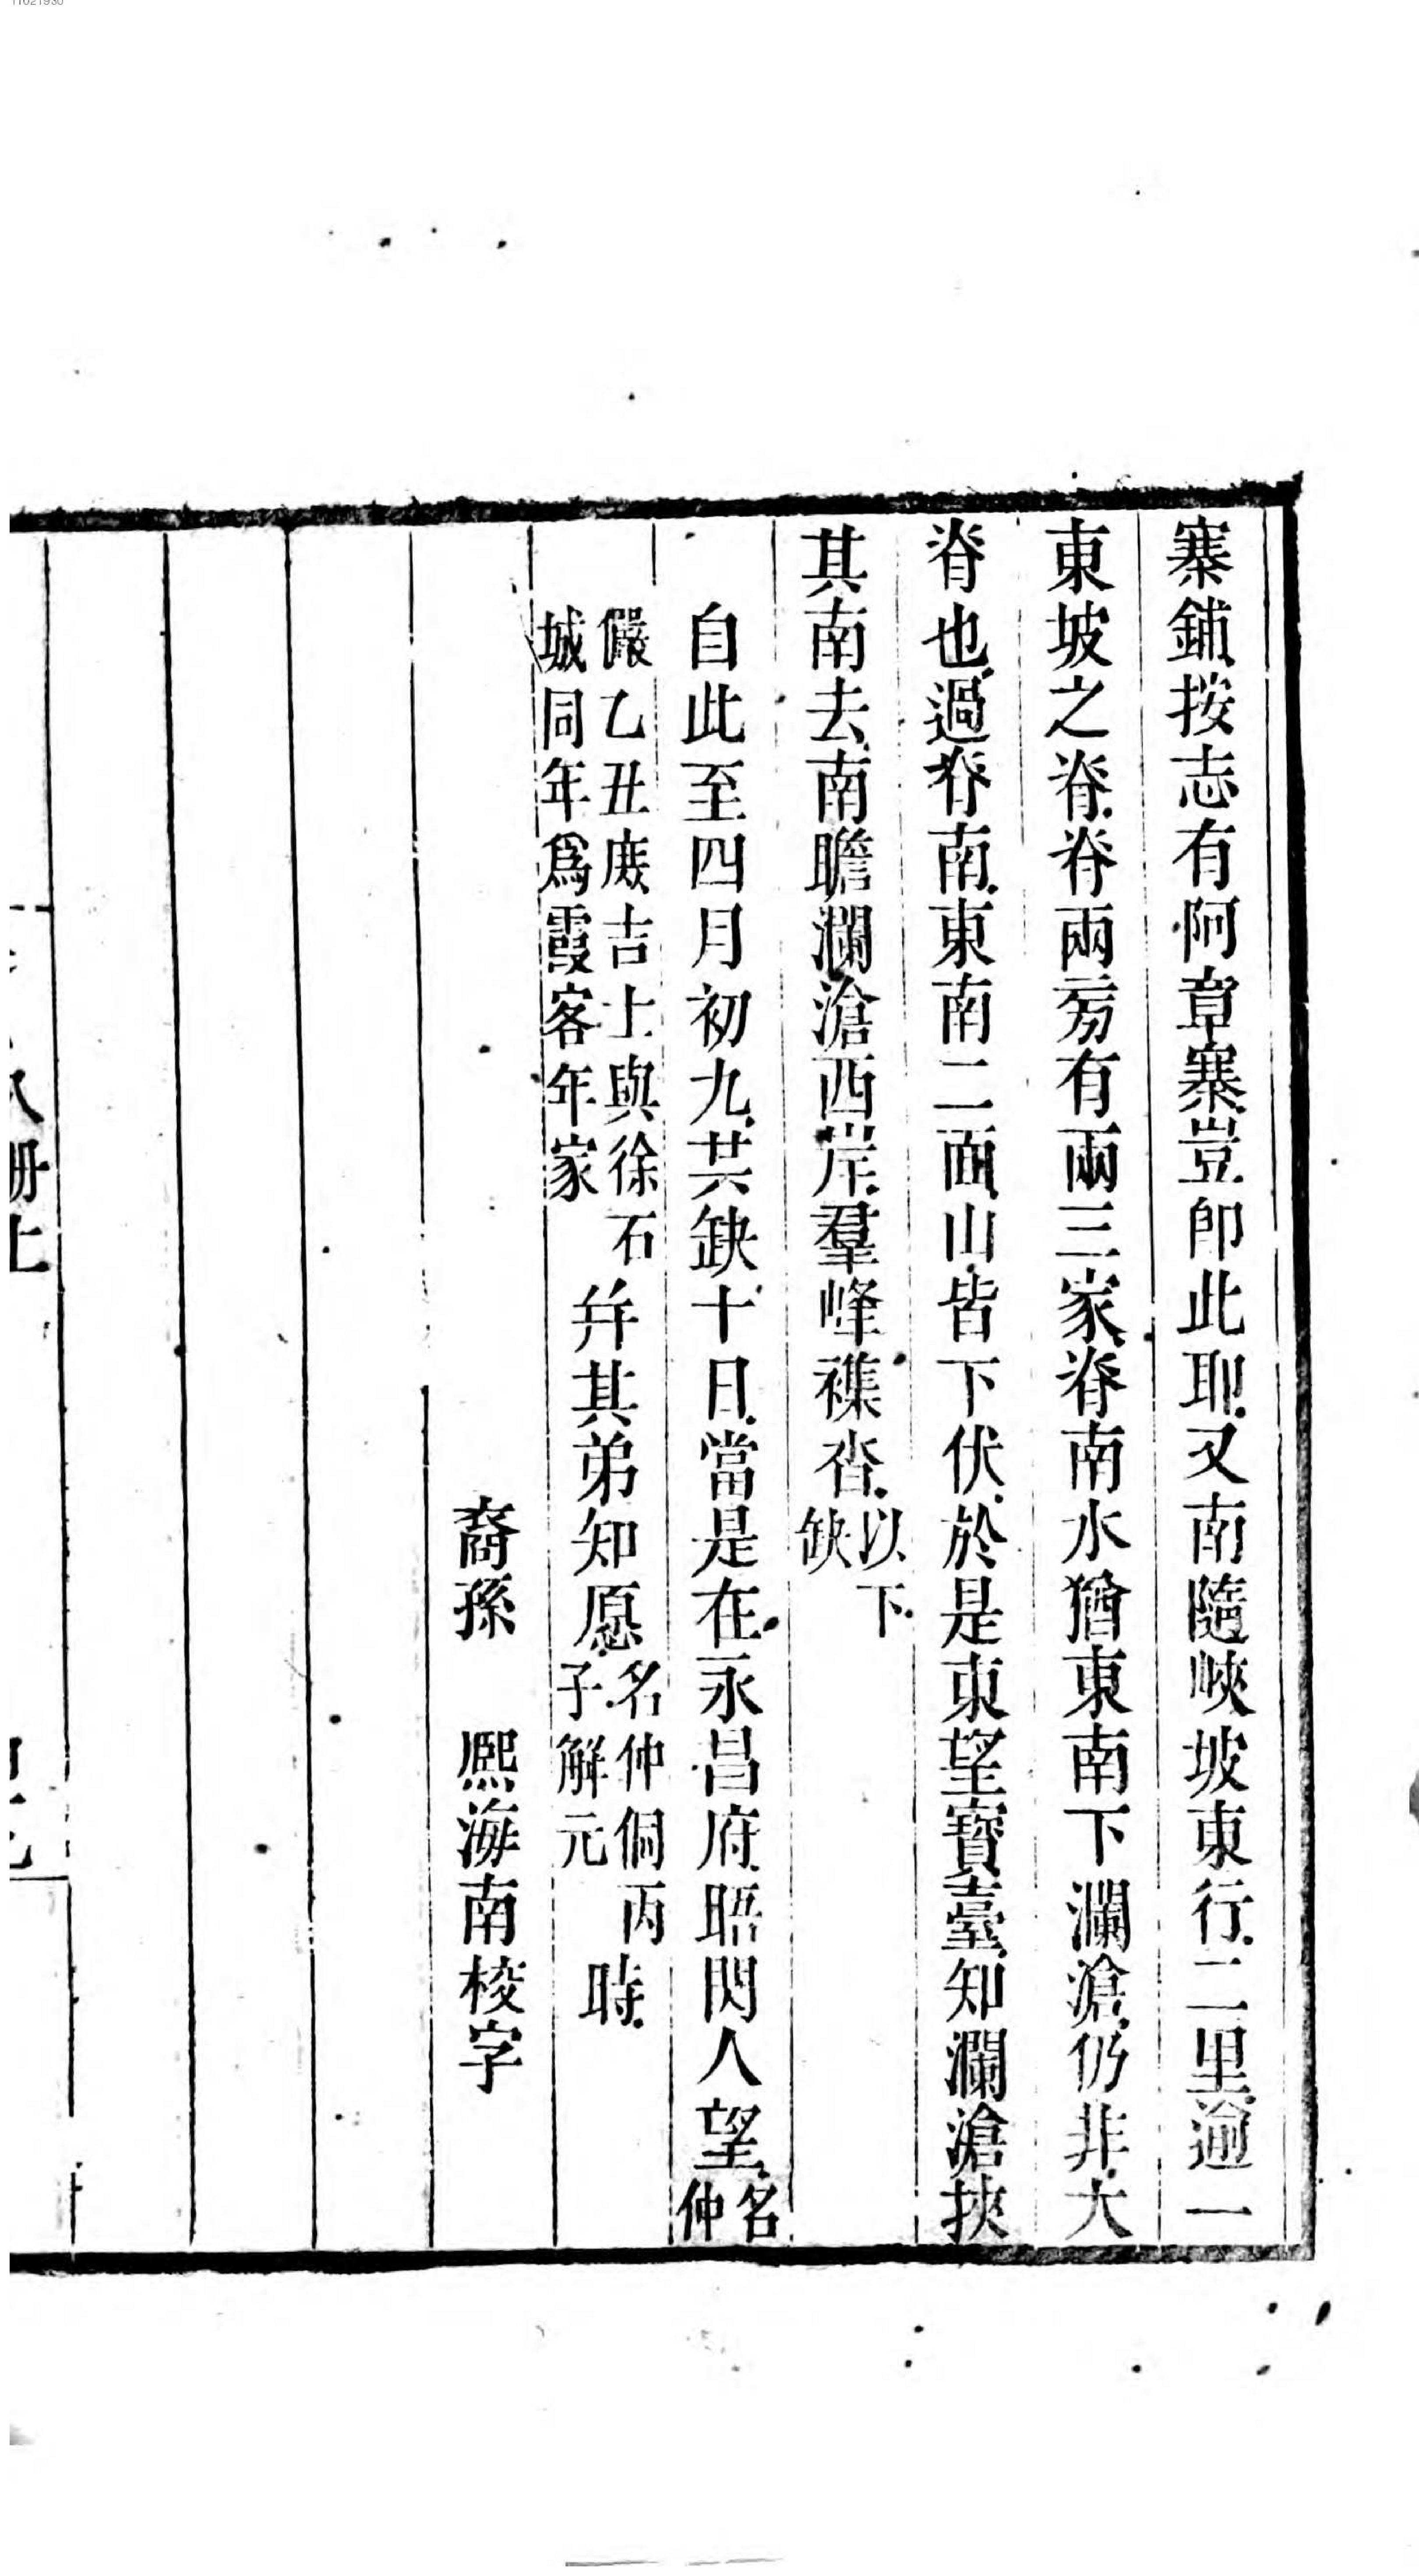 11021930
寨鋪按志有阿章寨豈即此耶又南隨峽坡東行二里逾一
東坡之脊脊兩旁有兩三家脊南水猶東南下瀾滄仍非大
脊也過脊南東南二面山皆下伏於是東望寶臺知瀾滄挾
其南去南瞻瀾滄西岸羣峰襍沓以下缺
自此至四月初九共缺十日當是在永昌府晤閃人望名仲
儼乙丑庶吉士與徐石城同年爲霞客年家幷其弟知愿名仲侗丙子解元時
裔孫 熙海南校字
八册上